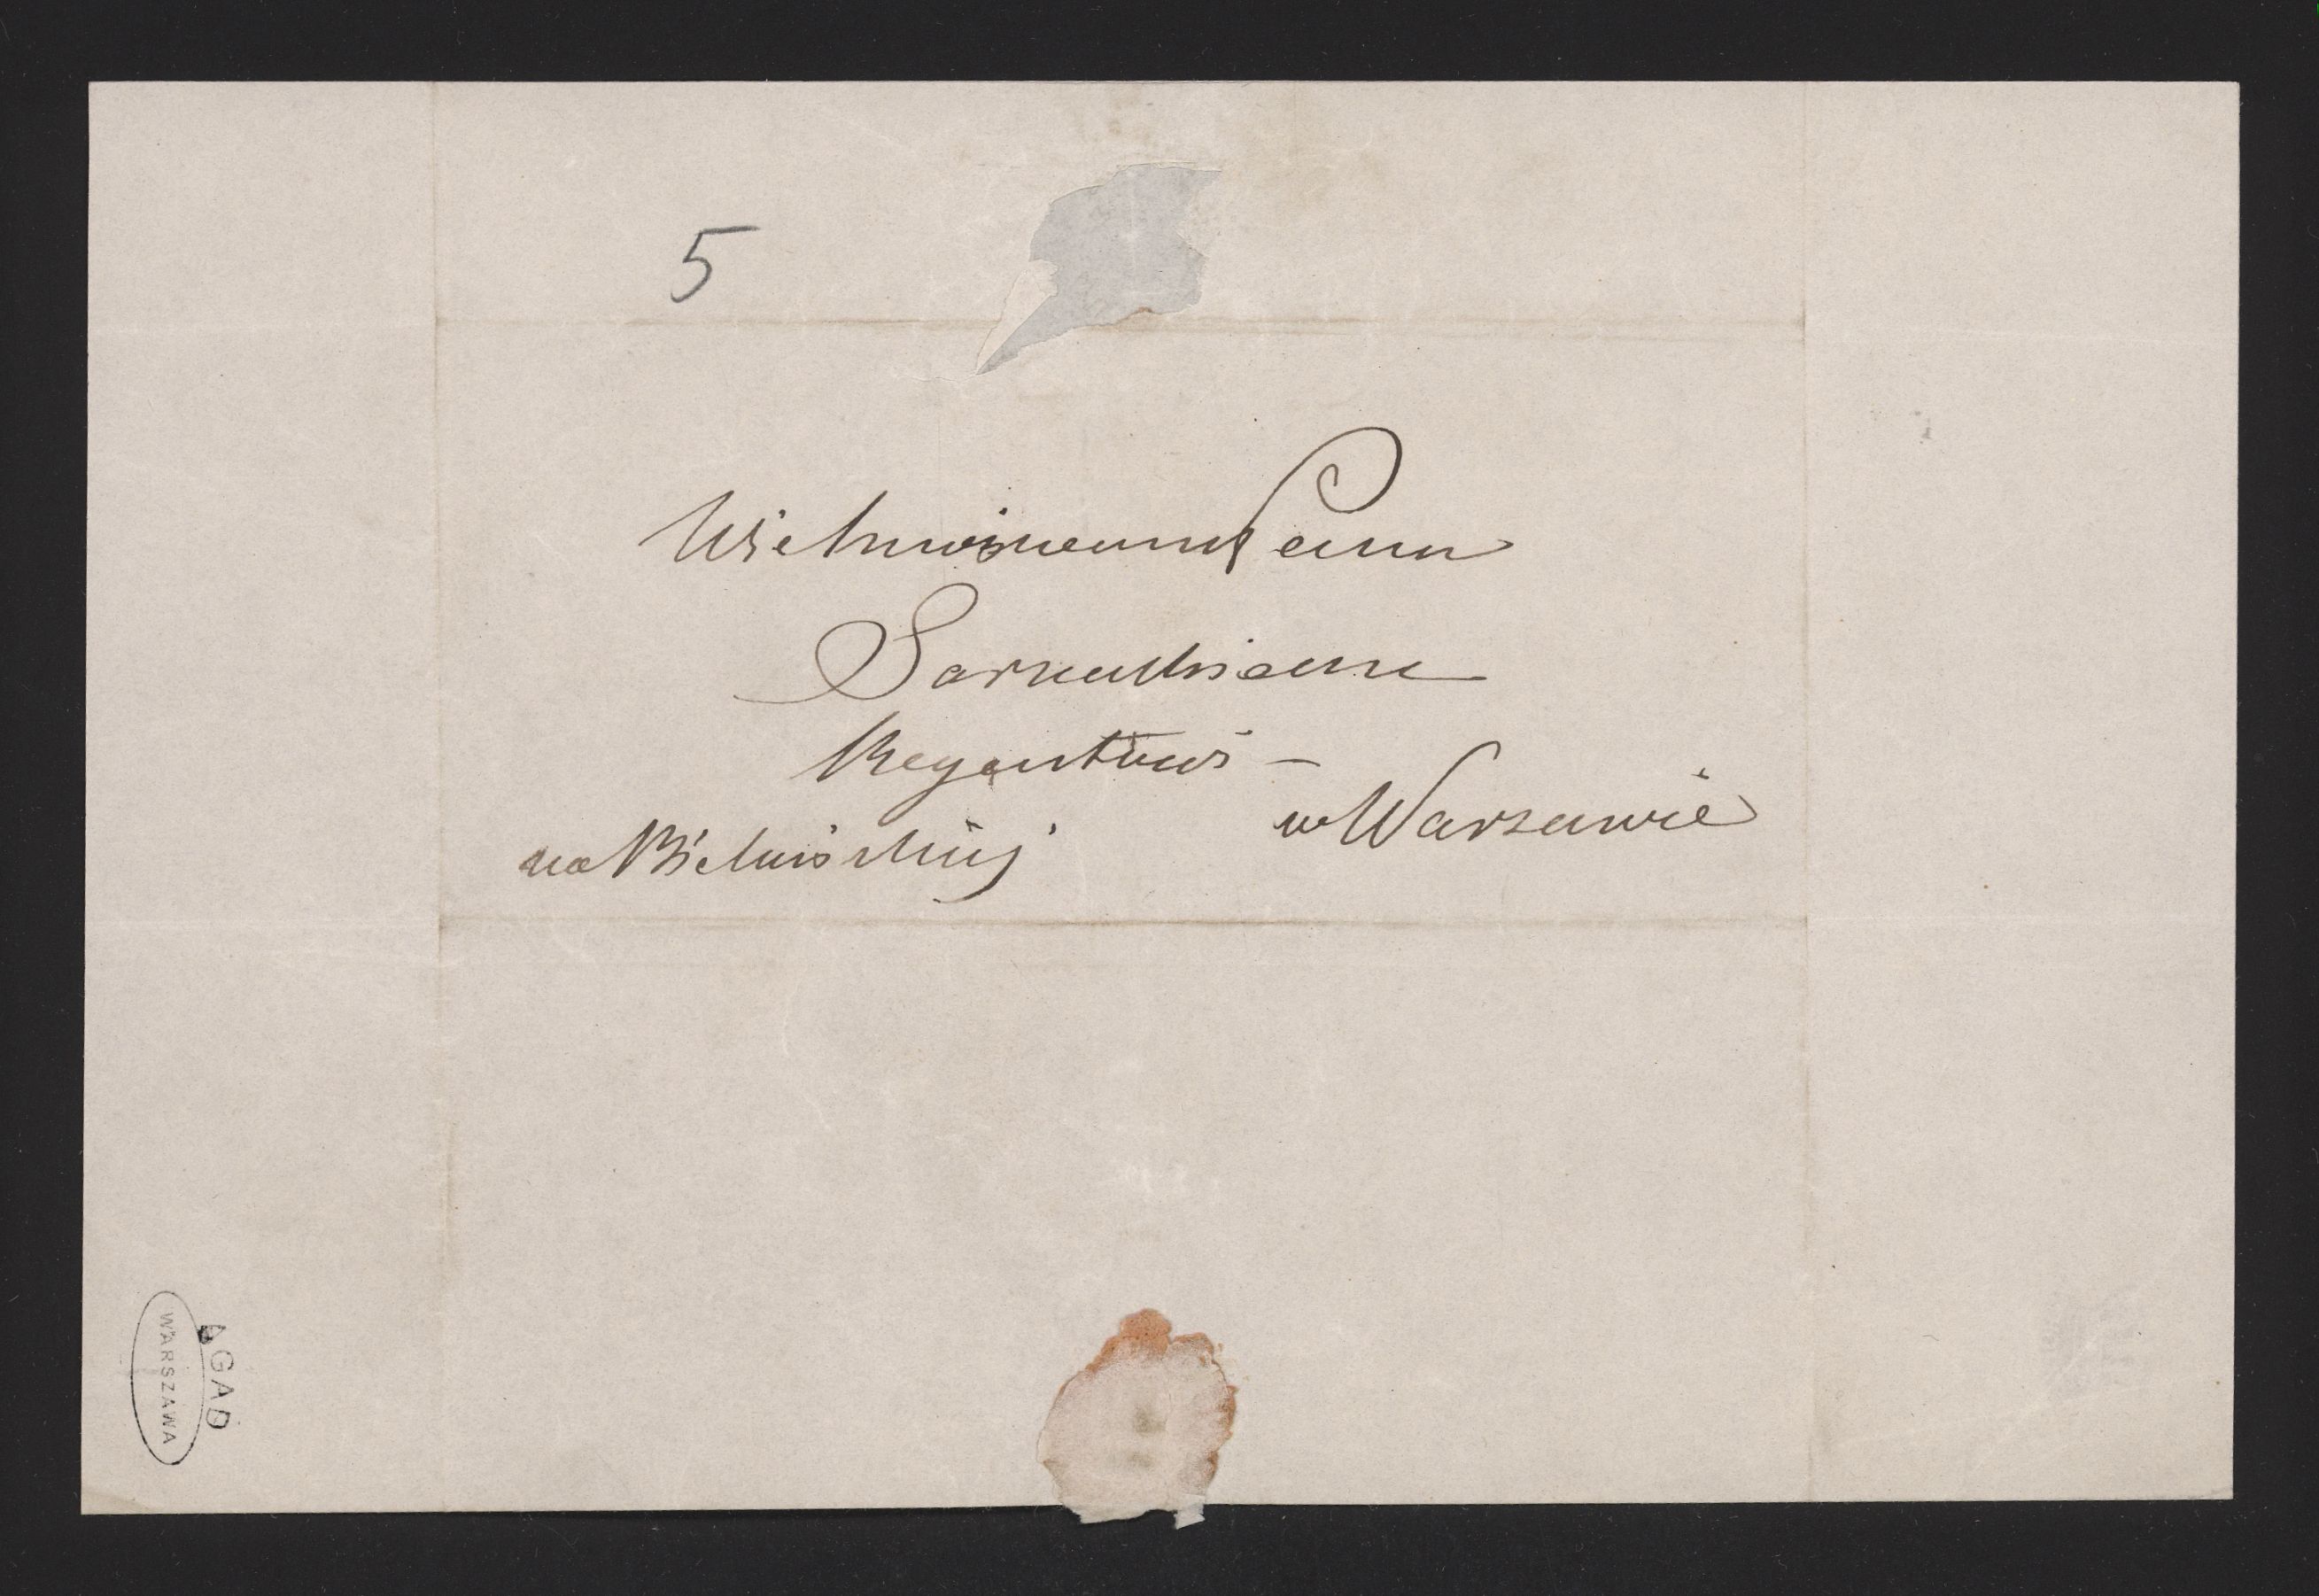 5
Wielmożnemu Panu
Regentowi –
w Warszawie
na Bielańskiej
AGAD
WARSZAWA